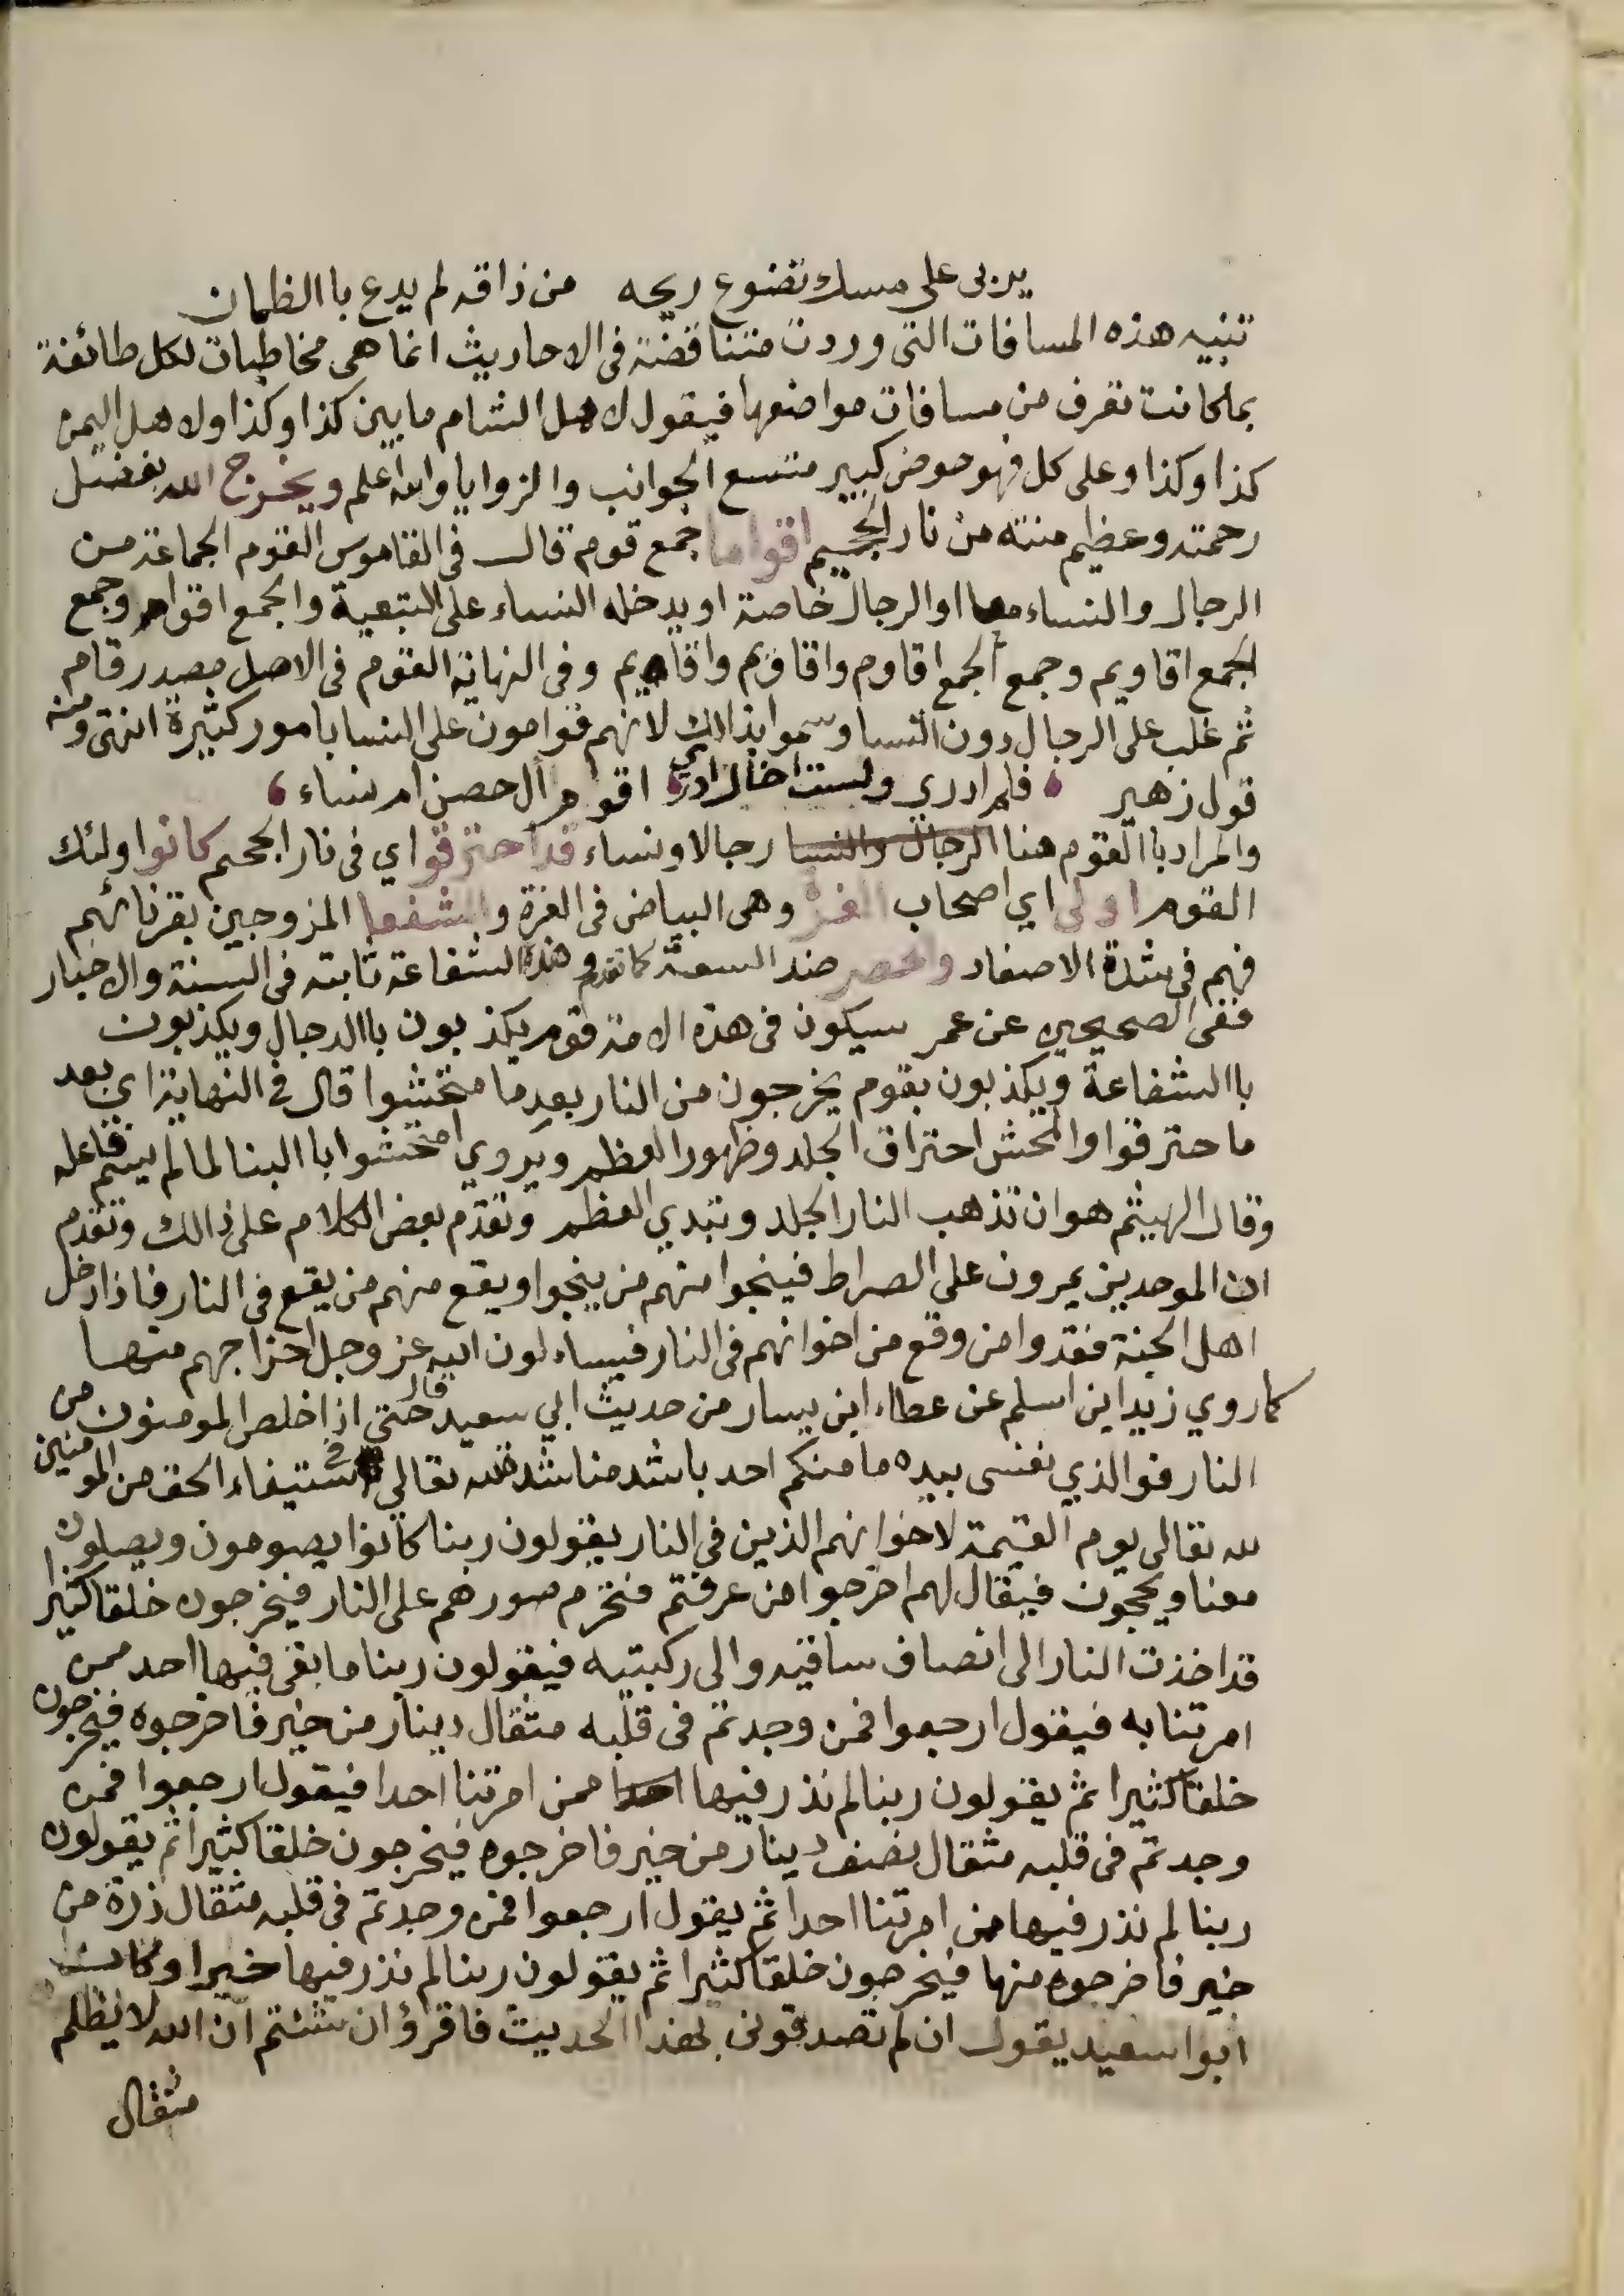 يربى على مسك تضوع ريحه من ذاقه لم يدع باالظمان
تنبيه هذه المسافات التى وردت متناقضة فى الاحاديث انما هى مخاطبات لكل طائفة
بما كانت تعرف من مسافات مواضعها فيقول لاهل الشام ما بين كذا وكذا ولاهل اليمن
كذا وكذا وعلى كل فهو حوض كبير متسع الجوانب والزوايا والله اعلم ويخرج الله بفضل
رحمته وعظيم منته من نار الجحيم اقواما جمع قوم قال فى القاموس القوم الجماعة من
الرجال والنساء معا او الرجال خاصة او يدخله النساء على التبعية والجمع اقوام وجمع
الجمع اقاويم وجمع الجمع اقاوم واقاويم واقاهيم وفى النهاية القوم فى الاصل مصدر قام
ثم غلب على الرجال دون النسا وسموا بذالك لانهم قوامون على النسا بامور كثيرة انتهى ومنه
قول زهير فلم ادري ولست اخال ادري اقوم آل حصن ام نساء
والمراد باالقوم هنا الرجال والنسا رجالا ونساء قد احترقوا اي فى نار الجحيم كانوا اولئك
القوم اولى اي اصحاب الغرة وهى البياض فى الغرة والشفعا المزوجين بقرنائهم
فهم فى شدة الاصفاد والحصر ضد السعة كما تقدم وهذه الشفاعة ثابته فى السنة والاحبار
ففى الصحيحين عن عمر سيكون فى هذه الامة قوم يكذبون باالدجال ويكذبون
باالشفاعة ويكذبون بقوم يخرجون من النار بعد ما امتحشوا قال فى النهاية اي بعد
ما حترقوا والمحش احتراق الجلد وظهور العظم ويروي امتحشوا باالبنا لما لم يسم فاعله
وقال الهيثم هو ان تذهب النار الجلد وتبدي العظم وتقدم بعض الكلام على ذالك وتقدم
ان الموحدين يمرون على الصراط فينجوا منهم من ينجوا ويقع منهم من يقع فى النار فاذا دخل
اهل الجنة فقدوا من وقع من اخوانهم فى النار فيساءلون الله عز وجل اخراجهم منها
كما روي زيد ابن اسلم عن عطاء ابن يسار من حديث ابي سعيد قال حتى اذا خلص المومنون من
النار فوالذي نفسى بيده ما منكم احد باشد مناشدة لله تعالي فى استيفاء الحق من المومنين
لله تعالى يوم القيمة لاخوانهم الذين فى النار يقولون ربنا كانوا يصومون ويصلون
معنا ويحجون فيقال لهم اخرجوا من عرفتم فتحرم صورهم على النار فيخرجون خلقا كثيرا
قد اخذت النار الى انصاف ساقيه والى ركبتيه فيقولون ربنا ما بقى فيها احد ممن
امرتنا به فيقول ارجعوا فمن وجدتم فى قلبه مثقال دينار من خير فاخرجوه فيخرجون
خلقا كثيرا ثم يقولون ربنا لم نذر فيها احدا ممن امرتنا احدا فيقول ارجعوا فمن
وجدتم فى قلبه مثقال نصف دينار من خير فاخرجوه فيخرجون خلقا كثيرا ثم يقولون
ربنا لم نذر فيها ممن امرتنا احدا ثم يقول ارجعوا فمن وجدتم فى قلبه مثقال ذرة من
خير فاخرجوه منها فيخرجون خلقا كثيرا ثم يقولون ربنا لم نذر فيها خيرا وكان
ابوا سعيد يقول ان لم تصدقونى بهذا الحديث فاقرؤا ان شئتم ان الله لا يظلم
مثقال